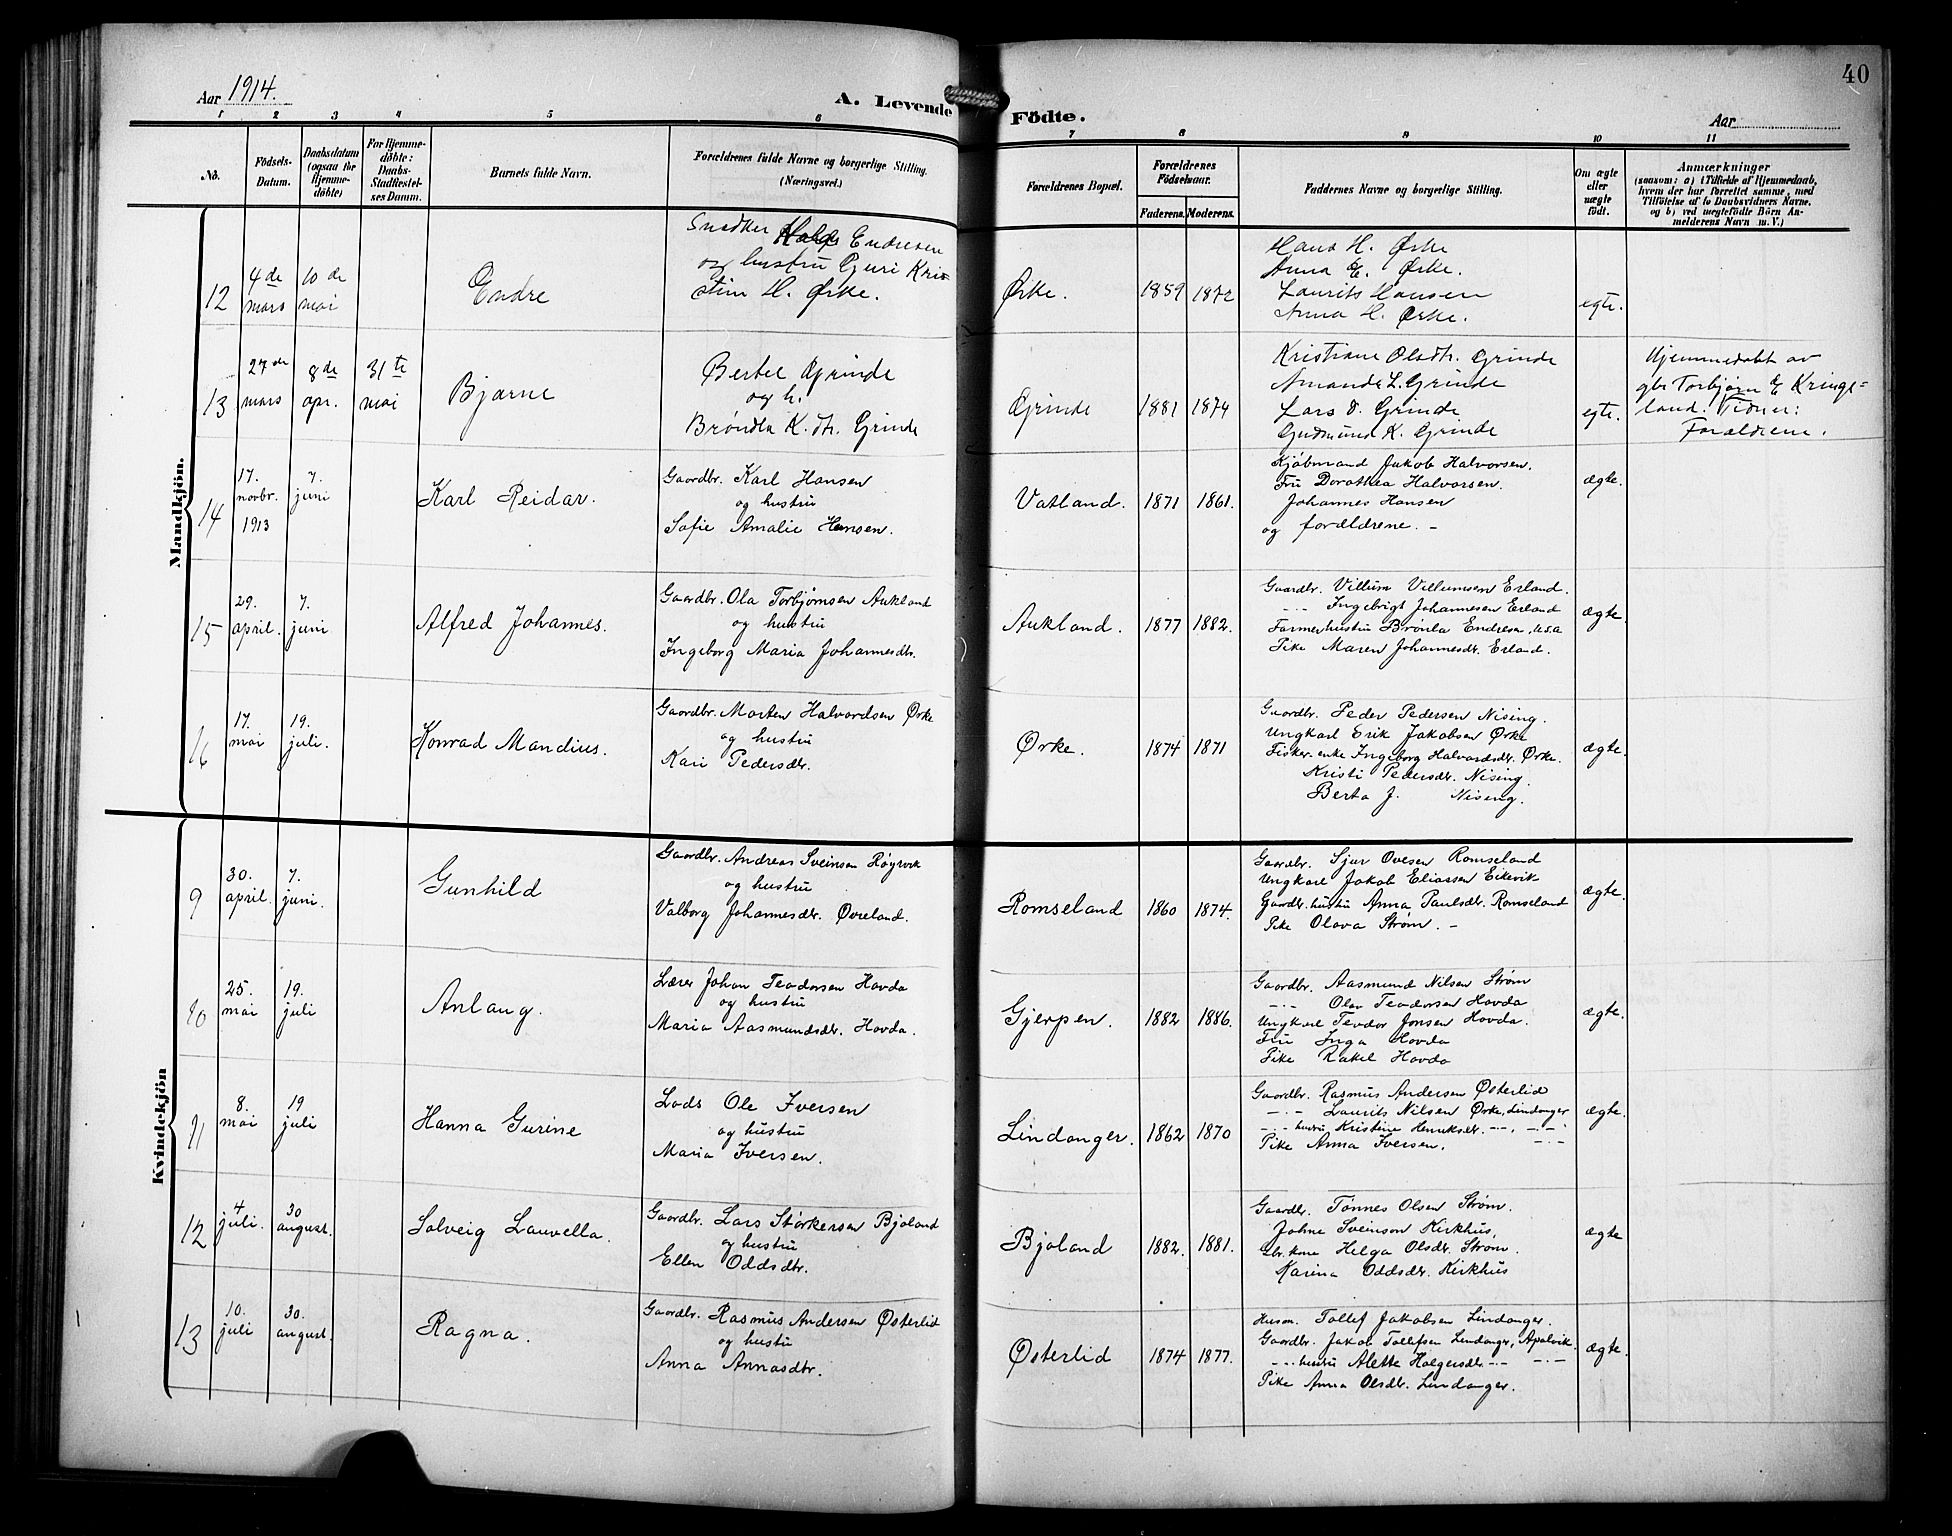 Aar 1914.
A. Levende Födte.
Aar
40
1 2 3 4 5 6 7 8 9 10 11
No.
Födsels-Datum.
Daabsdatum (ogsaa for Hjemmedöbte)
For Hjemmedöbte: Daabs-Stadfestelses Datum.
Barnets fulde Navn.
Forældrenes fulde Navne og borgerlige Stilling. (Næringsvei.)
Forældrenes Bopæl.
Forældrenes Födselsaar.
Faderens. Moderens.
Faddernes Navne og borgerlige Stilling.
Om ægte eller uægte födt.
Anmærkninger (saasom: a) i Tilfælde af Hjemmedaab, hvem der har forrettet samme, med Tilföielse af to Daabsvidners Navne, og b) ved uægtefödte Börn Anmelderens Navn m. V.)
Mandkjön.
12
4de mars
10de mai
Endre
Snedker Endresen
og hustru Guri Kri-
stine H. Ørke.
Ørke.
1859
1872
Hans H. Ørke
Anna E. Ørke.
Laurits Hansen
Anna H. Ørke.
egte.
13
27de mars
8de apr.
31te mai
Bjarne
Bertel Grinde
og h.
Bröndla K. dtr. Grinde
Grinde
1881
1874
Kristiane Olsdtr. Grinde
Amanda L. Grinde
Lars O. Grinde
Gudmund K. Grinde
egte.
Hjemmedøbt av
gbr Torbjørn E Kringe-
land. Vidner:
Forældrene.
14
17. novbr. 1913
7. juni
Karl Reidar.
Gaardbr. Karl Hansen
og hustru
Sofie Amalie Hansen.
Vatland.
1871
1861.
Kjøbmand Jakob Halvorsen.
Fru Dorothea Halvorsen.
Johannes Hansen
og forældrene. -
ægte.
15
29. april.
7. juni
Alfred Johannes.
Gaardbr. Ola Torbjørnsen Aukland
og hustru
Ingeborg Maria Johannesdtr.
Aukland.
1877
1882.
Gaardbr. Villum Villumsen Erland.
-"- Ingebrigt Johannesen Erland
Farmerhustru Brønla Endresen, U.S.A
Pike Maren Johannesdr. Erland.
ægte.
16
17. mai
19. juli.
Konrad Mandius.
Gaardbr. Morten Halvordsen Ørke
og hustru
Kari Pedersdr.
Ørke.
1874
1871
Gaardbr. Peder Pedersen Nising.
Ungkarl Erik Jakobsen Ørke
Fisker. enke Ingeborg Halvordsdr. Ørke.
Kristi Pedersdr. Nising.
Berta J. Nising.
ægte.
Kvindekjön
9
30. april.
7. juni.
Gunhild
Gaardbr. Andreas Sveinsen Røysvik
og hustru
Valborg Johannesdr. Øveland.
Romseland
1860
1874.
Gaardbr. Sjur Ovesen Romseland
Ungkarl Jakob Eliassen Eikevik
Gaardbr. hustru Anna Paulsdr. Romseland
Pike Olava Strøm. -
ægte.
10
25. mai
19. juli
Anlaug.
Lærer Johan Teodorsen Hovda
og hustru
Maria Aasmundsdr. Hovda.
Gjerpen.
1882
1886.
Gaardbr. Aasmund Nilsen Strøm
-"- Olav Teodorsen Hovda
Ungkarl Teodor Jonsen Hovda.
Fru Inga Hovda
Pike Rakel Hovda
ægte.
11
8. mai
19 juli
Hanna Gurine
Lods Ole Iversen
og hustru
Maria Iversen.
Lindanger.
1862
1870
Gaardbr. Rasmus Andersen Østerlid
-"- Laurits Nilsen Ørke, Lindanger
-"- hustru Kristine Henriksdr. -"-. -"-
Pike Anna Iversen. -"-
ægte.
12
4 juli.
30 august.
Solveig Lauvella.
Gaardbr. Lars Størkersen Bjoland
og hustru
Ellen Oddsdtr.
Bjoland
1882.
1881.
Gaardbr. Tönnes Olsen Strøm.
Johne Sveinson Kirkhus,
Gbr. kone Helga Olsdr. Strøm.
Karina Oddsdr. Kirkhus
ægte
13
10. juli
30. august.
Ragna.
Gaardbr. Rasmus Andersen Østerlid
og hustru
Anna Annasdtr.
Østerlid
1874
1877.
Husm. Tollef Jakobsen Lindanger.
Gaardbr. Jakob Tollefsen Lindanger, Apalvik.
-"- hustru Alette Holgersdr. -"- -"-
Pike Anna Olsdr. Lindanger.
ægte.